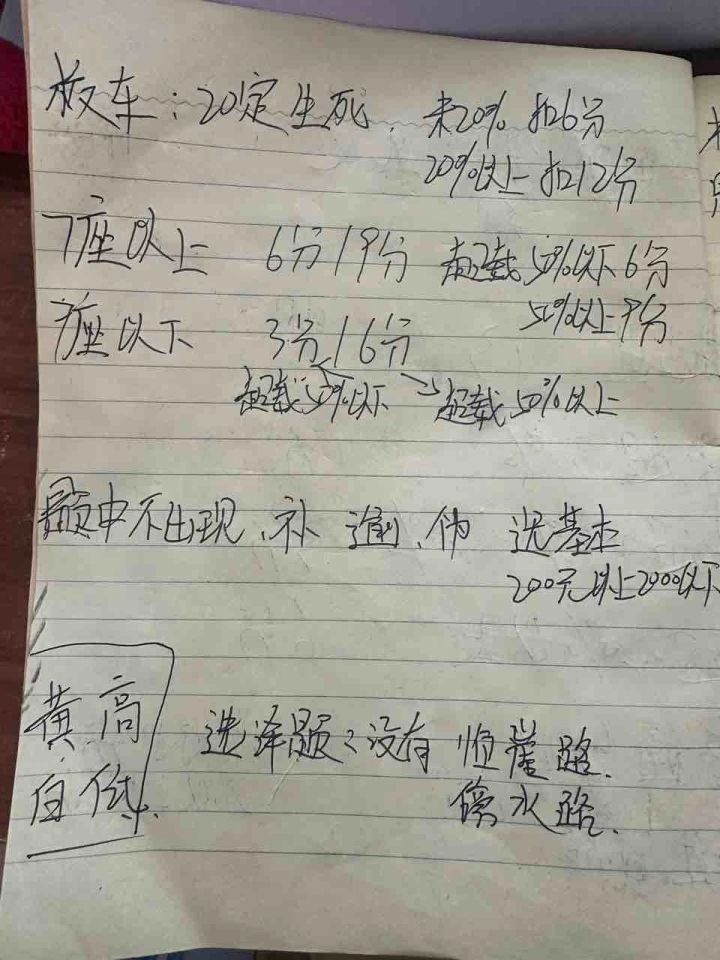 校车：20定生死． 未20% 扣6分
20%以上 扣12分
7座以上 6分/9分 超载50%以下6分
50%以上9分
7座以下 3分/6分
超载50%以下 → 超载50%以上
题中不出现、补 逾、伪 选基本
200元以上2000以下
黄高 选择题：没有 恒崖路．
白低． 傍水路．